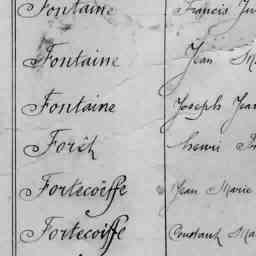 Fontaine Francis
Fontaine Jean
Fontaine Joseph Jean
Forêt henri
Fortecoëffe Jean Marie
Fortecoiffe Constant Ma